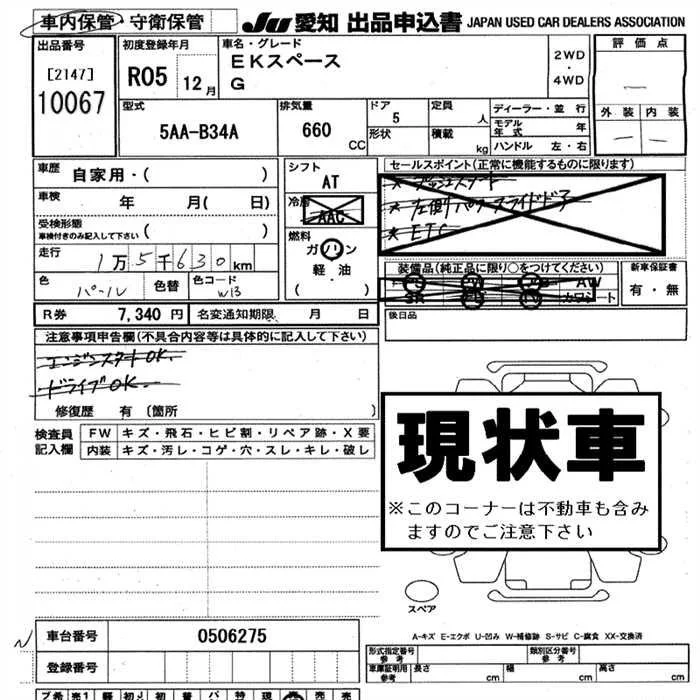 車内保管・守衛保管
JU 愛知 出品申込書 JAPAN USED CAR DEALERS ASSOCIATION
出品番号
[2147]
10067
初度登録年月
R05 12月
車名・グレード
EKスペース
G
2WD
・
4WD
評価点
―
外装 内装
― ―
型式
5AA-B34A
排気量
660 CC
ドア
5
形状
定員
人
積載
kg
ディーラー・並行
モデル年式 年
ハンドル 左・右
車歴
自家用・( )
車検
年 月( 日)
受検形態
車検付きのみ記入して下さい ( )
走行
1万5千630km
色
パール
色替
色コード
W13
シフト
AT
冷房
AAC
燃料
ガソリン
軽・油
( )
セールスポイント(正常に機能するものに限ります)
* プッシュスタート
* 左側パワースライドドア
* ETC
装備品(純正品に限り○をつけてください)
AW
SR
カワシート
新車保証書
有・無
R券 7,340円
名変通知期限 月 日
後日品
注意事項申告欄(不具合内容等は具体的に記入して下さい)
エンジンスタートOK.
ドライブOK.
修復歴 有〔箇所 〕
検査員記入欄
FW キズ・飛石・ヒビ割・リペア跡・X要
内装 キズ・汚レ・コゲ・穴・スレ・キレ・破レ
現状車
※このコーナーは不動車も含み
ますのでご注意下さい
スペア
A-キズ E-エクボ U-凹み W-補修跡 S-サビ C-腐食 XX-交換済
N
車台番号
0506275
登録番号
形式指定番号
参考
類別区分番号
参考
車庫証明用
参考
長さ cm 幅 cm 高さ cm